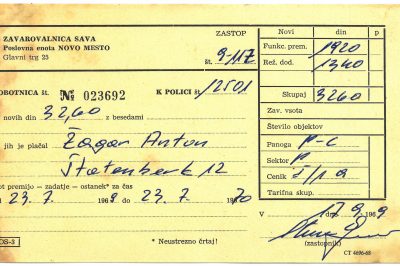 ZAVAROVALNICA SAVA
Poslovna enota NOVO MESTO
Glavni trg 25
ZASTOP
št. 9-117
OBOTNICA št. № 023692 K POLICI št. 12501
novih din 32,60 z besedami
jih je plačal Žagar Anton
Štatenberk 12
ot premijo — zadatje — ostanek* za čas
23. 7. 1969 23. 7. 1970
OS-3 * Neustrezno črtaj!
Novi din p
Funkc. prem. 1920
Rež. dod. 1340
Skupaj 3260
Zav. vsota
Število objektov
Panoga P-C
Sektor P
Cenik I/1 a
Tarifna skup.
V 17 9 1969
(zastopnik)
CT 4696-68